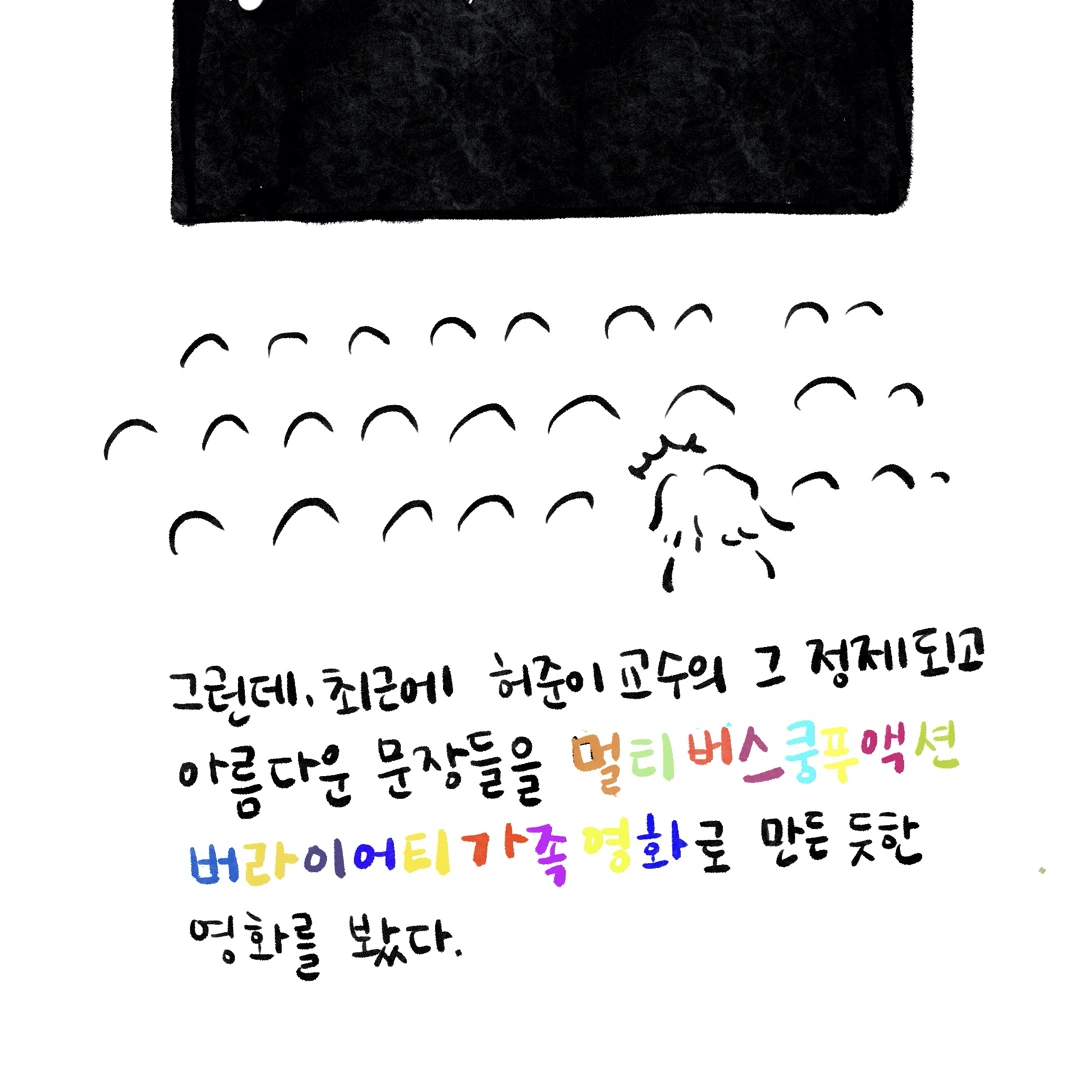 그런데, 최근에 허준이 교수의 그 정제되고
아름다운 문장들을 멀티버스쿵푸액션
버라이어티가족영화로 만든 듯한
영화를 봤다.